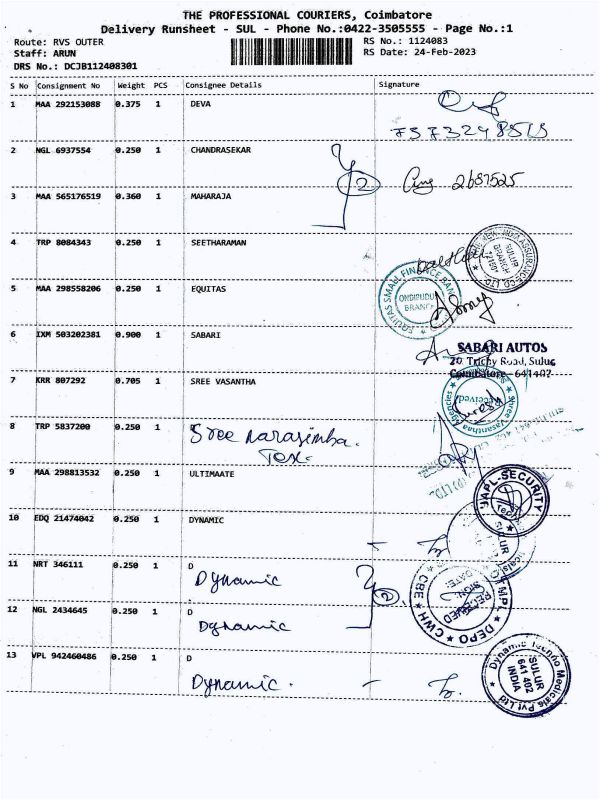 THE PROFESSIONAL COURIERS, Coimbatore
Delivery Runsheet - SUL - Phone No.:0422-3505555 - Page No.:1
Route: RVS OUTER RS No.: 1124083
Staff: ARUN RS Date: 24-Feb-2023
DRS No.: DCJB112408301
S No Consignment No Weight PCS Consignee Details Signature
1 MAA 292153088 0.375 1 DEVA
2 NGL 6937554 0.250 1 CHANDRASEKAR
2 2687525
3 MAA 565176519 0.360 1 MAHARAJA
4 TRP 8084343 0.250 1 SEETHARAMAN
SULUR BRANCH
5 MAA 298558206 0.250 1 EQUITAS
EQUITAS SMALL FINANCE BANK
ONDIPUDUR BRANCH
6 IXM 503202381 0.900 1 SABARI
SABARI AUTOS
20, Trichy Road, Sulur
Coimbatore - 641402
7 KRR 807292 0.705 1 SREE VASANTHA
Sree Vasantha Agencies
Received
8 TRP 5837200 0.250 1 Sree Narasimha
Tex.
9 MAA 298813532 0.250 1 ULTIMAATE
SECURITY
10 EDQ 21474042 0.250 1 DYNAMIC
SULUR
11 NRT 346111 0.250 1 D
Dynamic
2
RECEIVED
SIGN
DATE
CWH DEPO MPL CRE
12 NGL 2434645 0.250 1 D
Dynamic
13 VPL 942460486 0.250 1 D
Dynamic.
Dynamic Techno Medicals Pvt Ltd
SULUR
641 402
INDIA